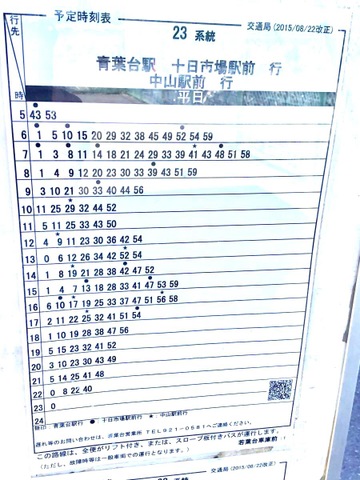 行先
予定時刻表
交通局(2015/08/22改正)
23 系統
青葉台駅 十日市場駅前 行
中山駅前 行
時
平日
5 43 53
6 1 5 10 15 20 29 32 38 45 49 52 54 59
7 1 3 8 11 14 18 21 24 29 33 39 41 43 48 51 58
8 1 4 9 12 20 23 30 33 39 43 51 59
9 3 10 21 30 33 40 44 56
10 11 25 29 32 44 52
11 5 11 25 33 43 50
12 4 9 11 23 30 36 42 54
13 0 6 12 26 34 42 52 54
14 1 8 19 21 28 38 42 47 52
15 1 4 7 13 18 28 33 41 47 53 59
16 6 10 17 19 25 33 37 47 51 56 58
17 2 11 22 25 32 41 51 54
18 1 10 19 28 38 47 56
19 5 15 23 32 41 52
20 3 10 23 30 43 49
21 5 14 25 41 48
22 0 8 22 40
23 0
24
無印:青葉台駅行 ●:十日市場駅前行 ★:中山駅前行
遅れ等のお問い合わせは、若葉台営業所 TEL921-0581へご連絡ください。
この路線は、全便がリフト付き、または、スロープ板付きバスが運行します。
(ただし、故障時等は一般車両での運行となります。)
若葉台車庫前
交通局(2015/08/22改正)